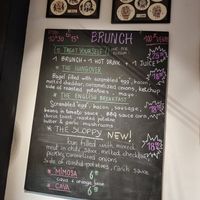 BRUNCH
TREAT YOURSELF
1 BRUNCH + 1 HOT DRINK + 1 JUICE
* THE HANGOVER
Bagel filled with scrambled egg, bacon,
melted cheddar, caramelized onions, ketchup
side of roasted potatoes, mayo
* THE ENGLISH BREAKFAST
Scrambled egg, bacon, sausage,
beans in tomato sauce, BBQ sauce
toast, roasted potatoes
butter & garlic mushrooms
* THE SLOPPY NEW!
Bun filled with mixed
meat in chili sauce, melted cheddar
pickles, caramelized onions
Side of roasted potatoes, ranch sauce
* MIMOSA 6€
cava + orange juice
* CAVA 6€